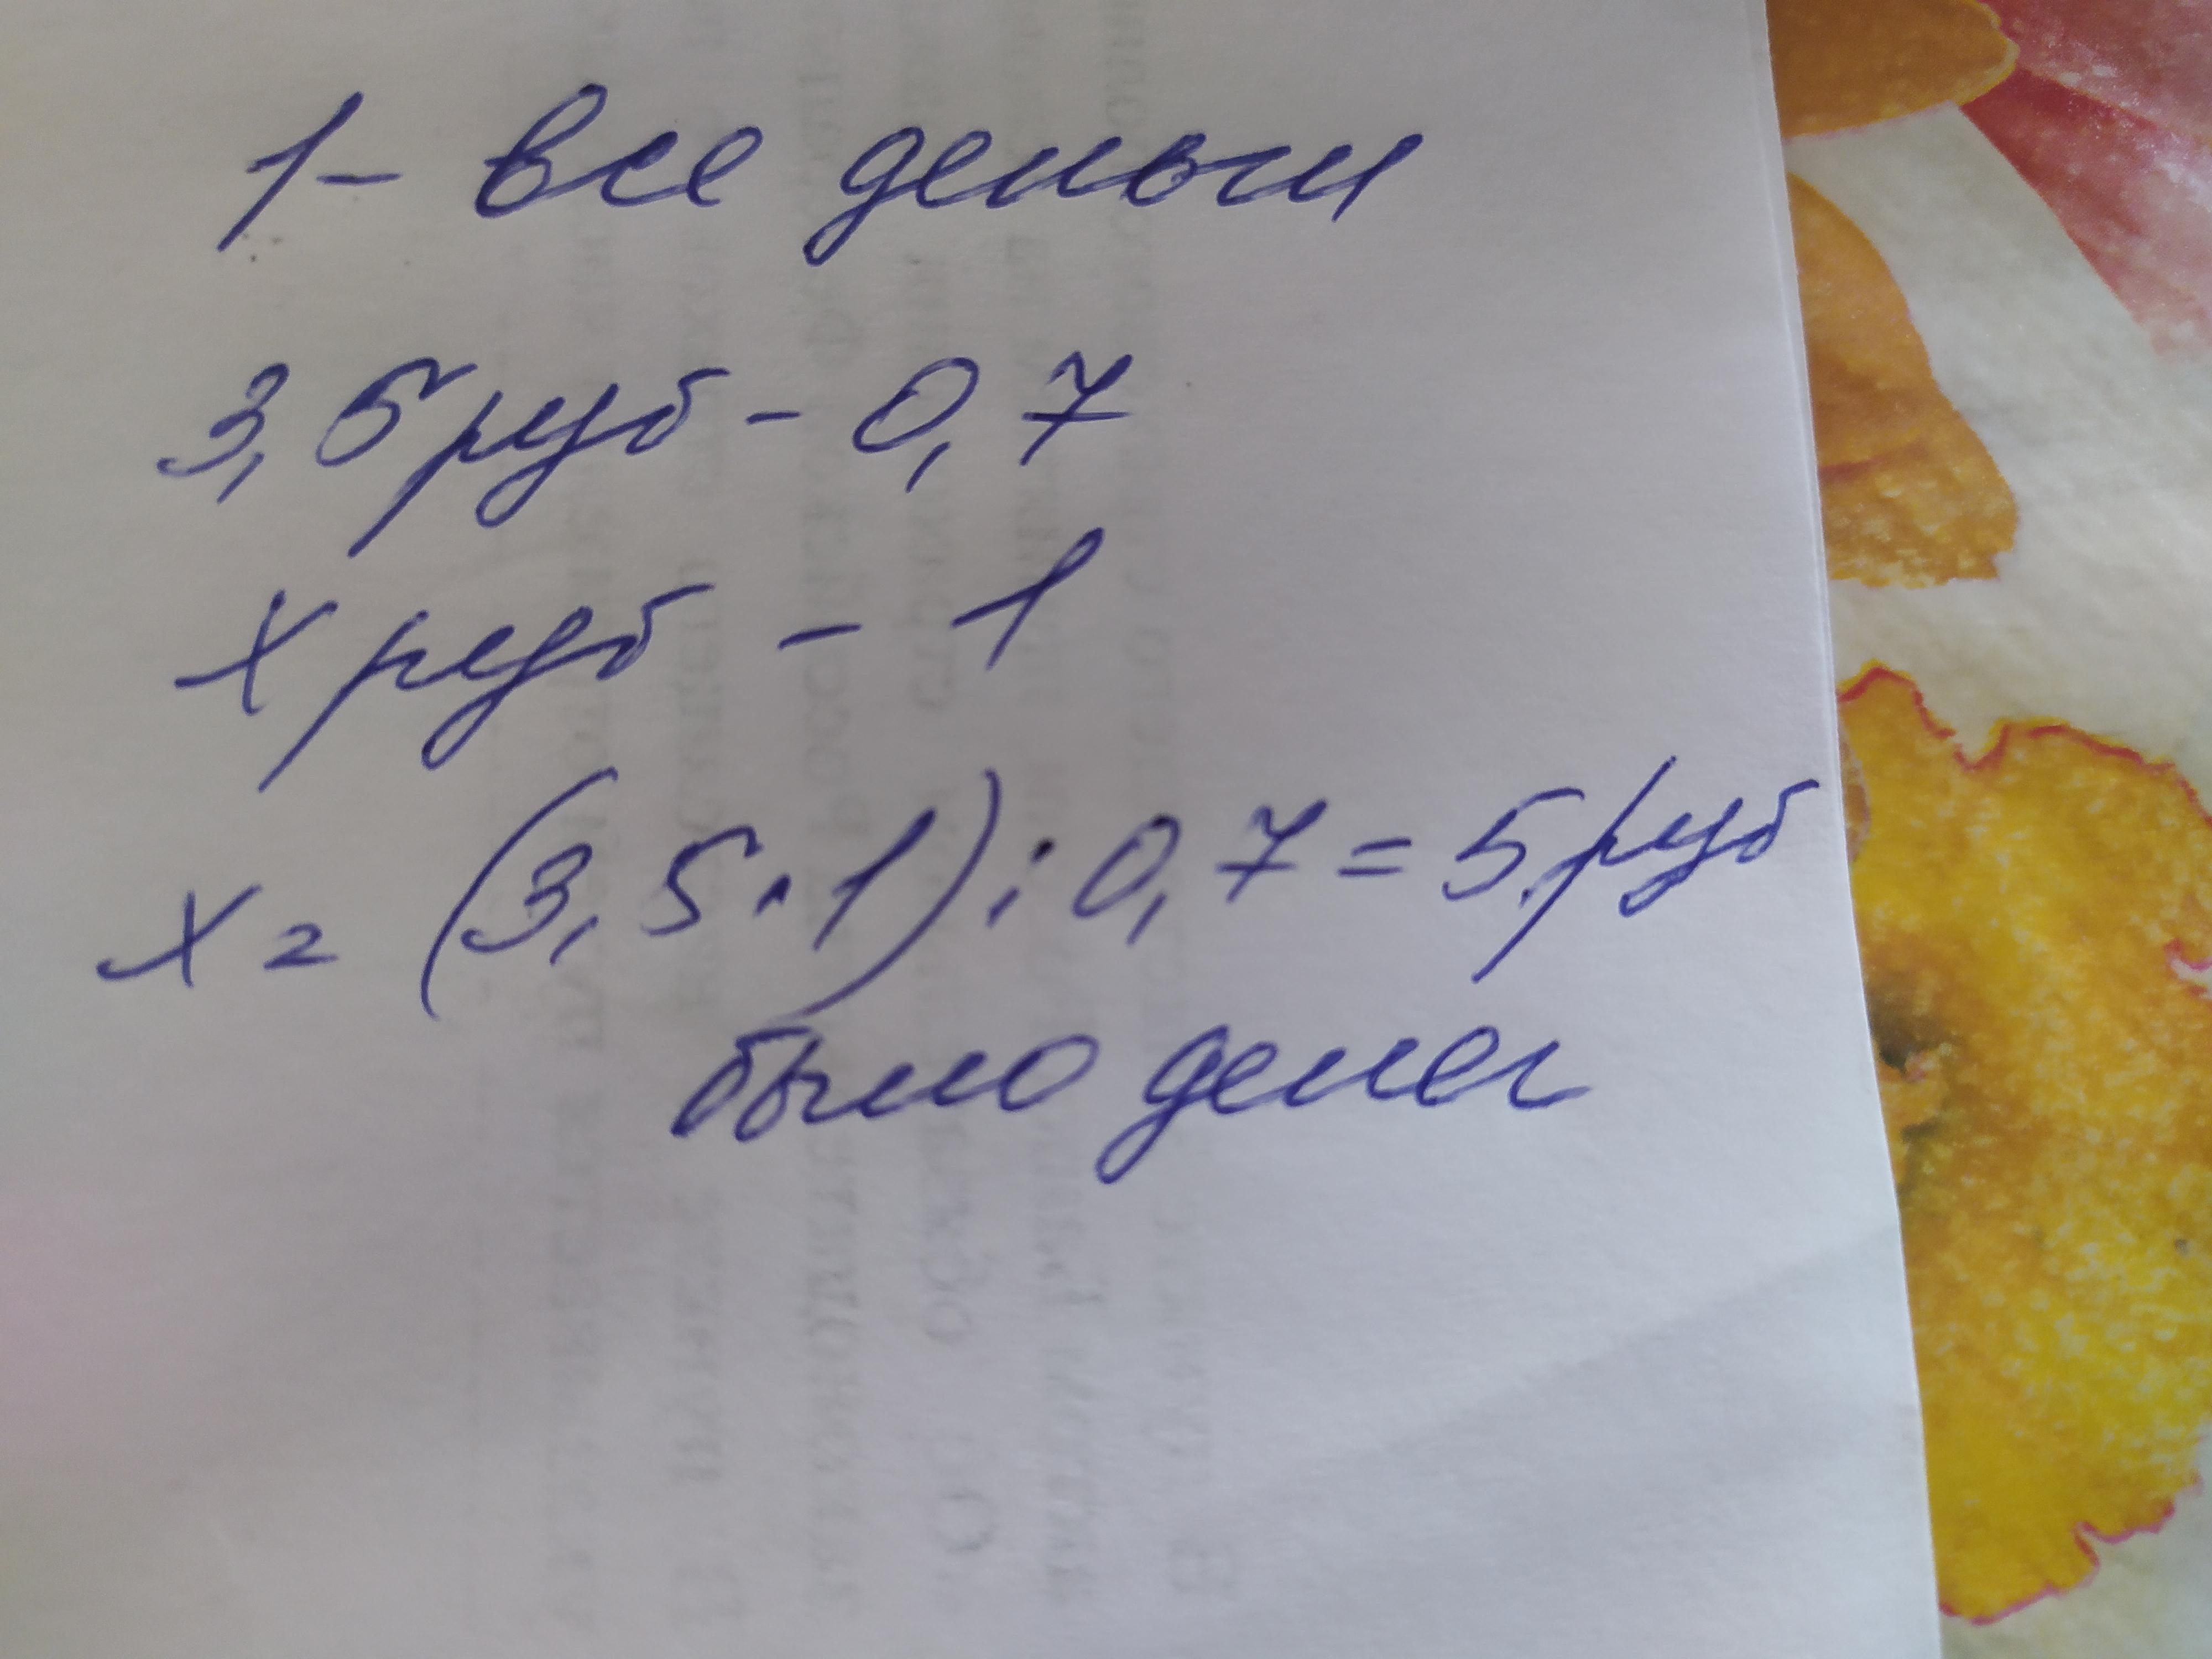 1 - все деньги
3,5 руб - 0,7
х руб - 1
х = (3,5 · 1) : 0,7 = 5 руб
было денег